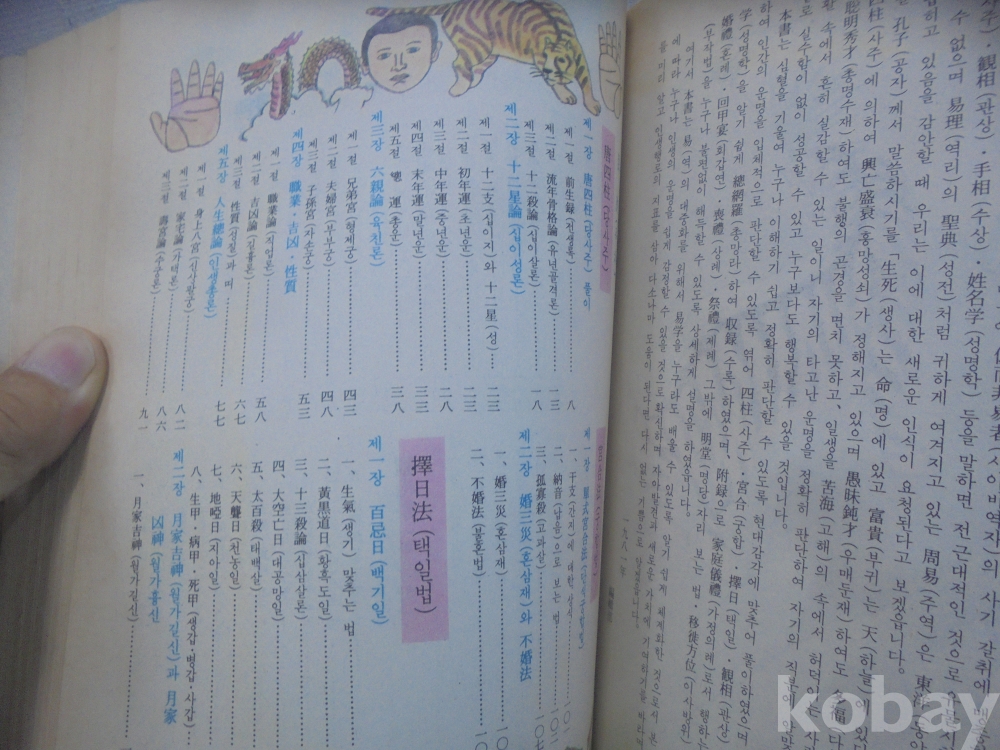 수 없으며 易理(역리)의 聖典(성전)처럼 귀하게 여겨지고 있는 周易(주역)은 東
있음을 감안할 때 우리는 이에 대한 새로운 인식이 요청된다고 보겠읍니다.
孔子(공자)께서 말씀하시기를 「生死(생사)는 命(명)에 있고 富貴(부귀)는 天(하늘)에 있
四柱(사주)에 의하여 興亡盛衰(흥망성쇠)가 정해지고 있으며 愚昧鈍才(우매둔재)하여도
聰明秀才(총명수재)하여도 불행의 곤경을 면치 못하고, 일생을 苦海(고해)의 속에서 허덕
활 속에서 흔히 실감할 수 있는 일이니 자기의 타고난 운명을 정확히 판단하여 자기의
실수함이 없이 성공할 수 있고 누구보다도 행복할 수 있을 것입니다.
本書는 심혈을 기울여 누구나 이해하기 쉽고 정확히 판단할 수 있도록 현대감각에 맞추어 풀이하였으며
하여 인간의 운명을 입체적으로 판단할 수 있도록 엮어 四柱(사주)·宮合(궁합)·擇日(택일)·觀相(관상)
学(성명학)을 알기 쉽게 總網羅(총망라)하여 収録(수록)하였으며, 附録으로 家庭儀禮(가정의례)로서
婚禮(혼례)·回甲宴(회갑연)·喪禮(상례)·祭禮(제례) 그밖에 明堂(명당)자리 보는 법·移徙方位(이사방위)
(부작법)을 누구나 불편없이 해득할 수 있도록 상세하게 설명을 하였습니다.
여기서 本書는 易(역)의 대중화를 위해서 易学을 누구라도 배울 수 있도록 알기 쉽게 체계화한 것으로서 본
에 따라 누구나 인생의 운명을 쉽게 감정할 수 있을 것으로 확신하며 자아발전과 새로운 가치에 기여하기를 바라
一九八一年
唐四柱(당사주)
제一장 唐四柱(당사주) 풀이
제一절 前生録(전생록) 八
제二절 流年骨格論(유년골격론) 一三
제三절 十二殺論(십이살론) 一八
제二장 十二星論(십이성론)
제一절 十二支(십이지)와 十二星(성) 二三
제二절 初年運(초년운) 二三
제三절 中年運(중년운) 二八
제四절 末年運(말년운) 三三
제五절 總運(총운) 三八
제三장 六親論(육친론)
제一절 兄弟宮(형제궁) 四三
제二절 夫婦宮(부부궁) 四八
제三절 子孫宮(자손궁) 五三
제四장 職業·吉凶·性質
제一절 職業論(직업론) 五八
제二절 吉凶論(길흉론) 六七
제三절 性質(성질)과 며 七七
제五장 人生總論(인생총론)
제一절 身上八宮(신상팔궁) 八二
제二절 家宅論(가택론) 八六
제三절 壽宮論(수궁론) 九一
一、干支(간지)에 대한 상식
二、納音(납음)으로 보는 법
三、孤寡殺(고과살)
제二장 婚三災(혼삼재)와 不婚法
一、婚三災(혼삼재)
二、不婚法(불혼법)
擇日法(택일법)
제一장 百忌日(백기일)
一、生氣(생기) 맞추는 법
二、黃黒道日(황흑도일)
三、十三殺論(십삼살론)
四、大空亡日(대공망일)
五、太百殺(태백살)
六、天聾日(천농일)
七、地啞日(지아일)
八、生甲·病甲·死甲(생갑·병갑·사갑)
제二장 月家吉神(월가길신)과 月家
凶神(월가흉신)
一、月家吉神(월가길신)
kobay